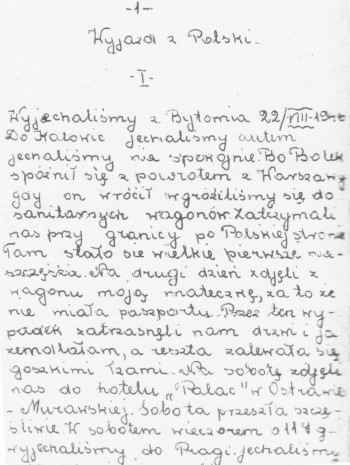 -1-
Wyjazd z Polski.
-I-
Wyjechaliśmy z Bytomia 22/VIII-19
Do Katowic jechaliśmy autem
jechaliśmy nie spokojnie. Bo Bolek
spóźnił się z powrotem z Warszawy
gdy on wrócił wgroźiliśmy się do
sanitarnych wagonów. Zatrzymali
nas przy granicy po Polskiej stronie
Tam stało sie wielkie pierwsze nie-
szczęście. Na drugi dzień zdjęli z
wagonu moją mateczkę, za to że
nie miała paszportu. Przez ten wy-
padek zatrzasnęli nam drzwi i ja
zemdlałam, a reszta zalewała się
goszkimi łzami. Na sobotę zdjęli
nas do hotelu „Palac" w Ostrawie
- Murawskiej. Sobota przeszła szczę-
śliwie W sobotem wieczorem o 11 4g
wyjechaliśmy do Pragi. jechaliśmy